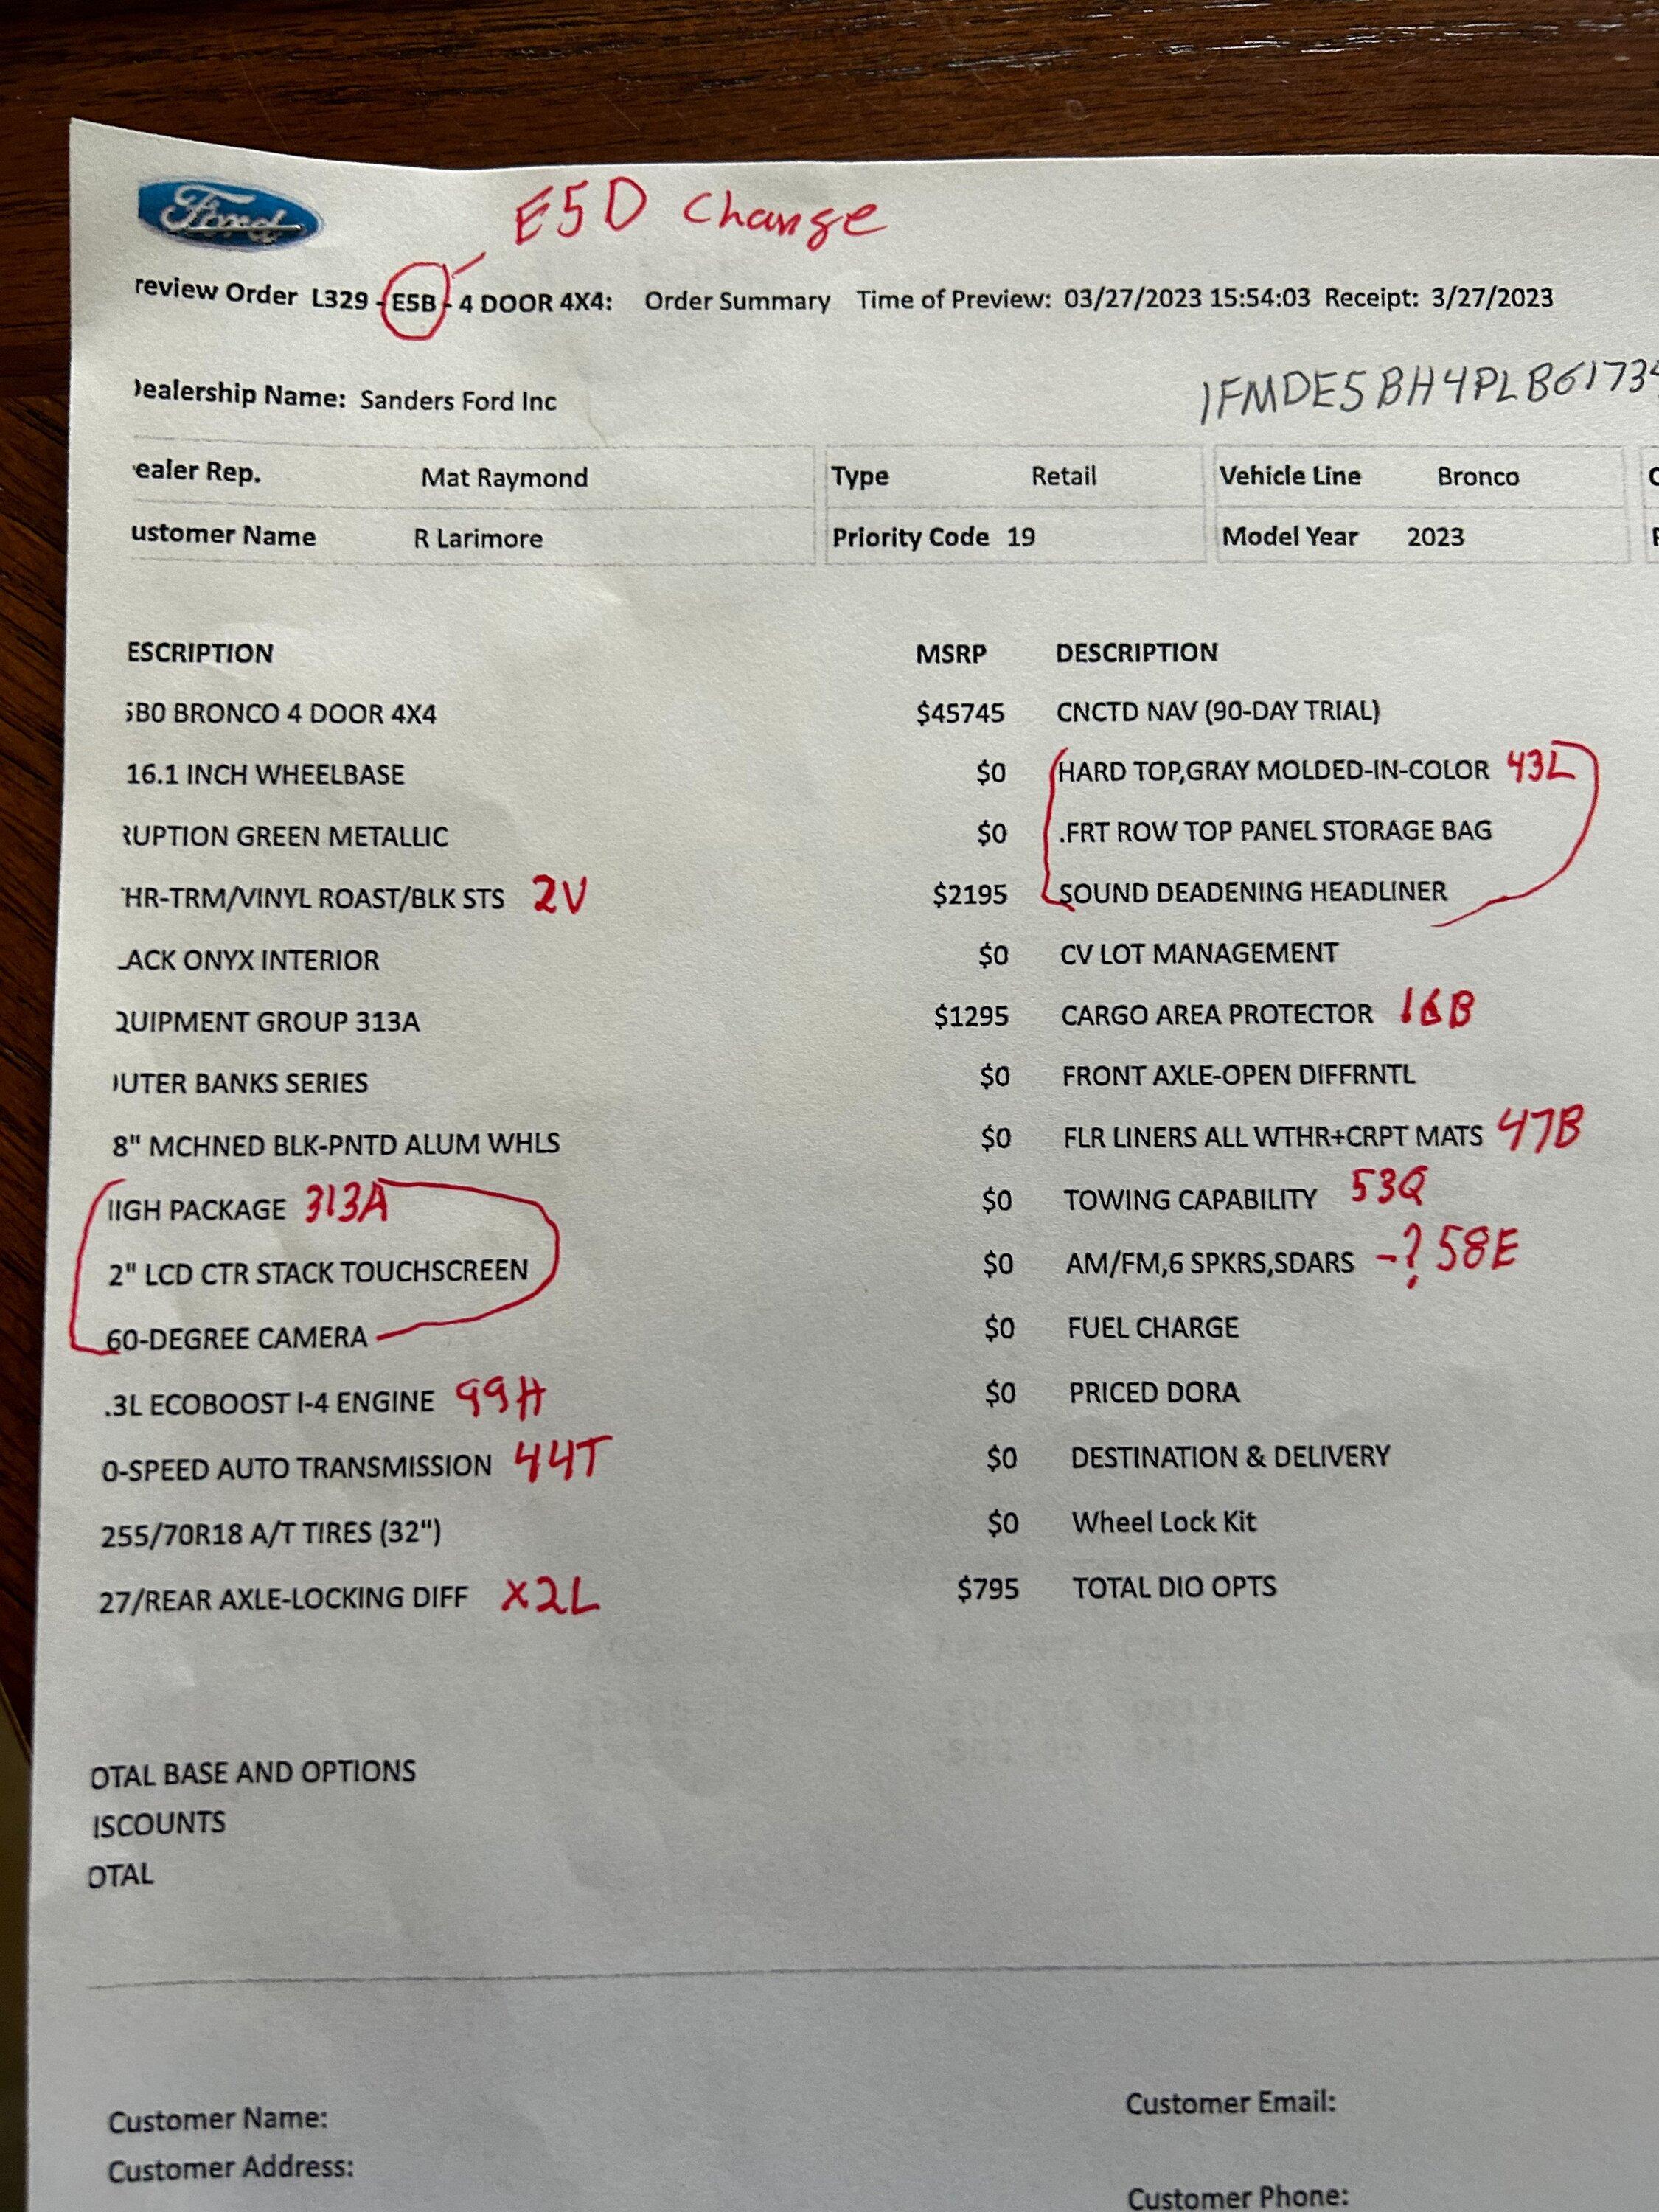 Ford
E5D Change
review Order L329 - E5B - 4 DOOR 4X4: Order Summary Time of Preview: 03/27/2023 15:54:03 Receipt: 3/27/2023
ealership Name: Sanders Ford Inc
1FMDE5BH4PLB6173
ealer Rep. Mat Raymond Type Retail Vehicle Line Bronco
ustomer Name R Larimore Priority Code 19 Model Year 2023
ESCRIPTION MSRP DESCRIPTION
5B0 BRONCO 4 DOOR 4X4 $45745 CNCTD NAV (90-DAY TRIAL)
16.1 INCH WHEELBASE $0 HARD TOP,GRAY MOLDED-IN-COLOR 43L
RUPTION GREEN METALLIC $0 .FRT ROW TOP PANEL STORAGE BAG
HR-TRM/VINYL ROAST/BLK STS 2V $2195 SOUND DEADENING HEADLINER
LACK ONYX INTERIOR $0 CV LOT MANAGEMENT
QUIPMENT GROUP 313A $1295 CARGO AREA PROTECTOR 16B
UTER BANKS SERIES $0 FRONT AXLE-OPEN DIFFRNTL
8" MCHNED BLK-PNTD ALUM WHLS $0 FLR LINERS ALL WTHR+CRPT MATS 47B
HIGH PACKAGE 313A $0 TOWING CAPABILITY 53Q
2" LCD CTR STACK TOUCHSCREEN $0 AM/FM,6 SPKRS,SDARS -? 58E
60-DEGREE CAMERA $0 FUEL CHARGE
.3L ECOBOOST I-4 ENGINE 99H $0 PRICED DORA
0-SPEED AUTO TRANSMISSION 44T $0 DESTINATION & DELIVERY
255/70R18 A/T TIRES (32") $0 Wheel Lock Kit
27/REAR AXLE-LOCKING DIFF X2L $795 TOTAL DIO OPTS
OTAL BASE AND OPTIONS
ISCOUNTS
OTAL
Customer Name: Customer Email:
Customer Address:
Customer Phone: